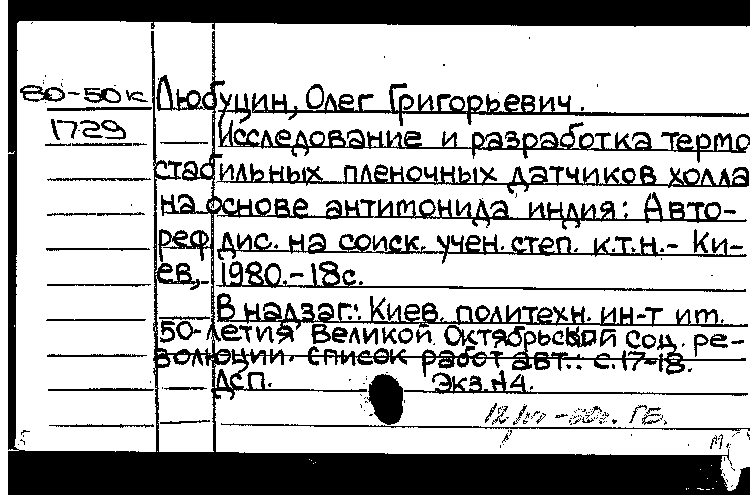 80-50к Любуцин, Олег Григорьевич.
1729 Исследование и разработка термо
стабильных пленочных датчиков холла
на основе антимонида индия: Авто-
реф дис. на соиск. учен. степ. к.т.н.- Ки-
ев, 1980.-18с.
В надзаг.: Киев. политехн. ин-т им.
50-летия Великой Октябрьской соц. ре-
волюции. Список работ авт.: с.17-18.
ДСП. Экз.N4.